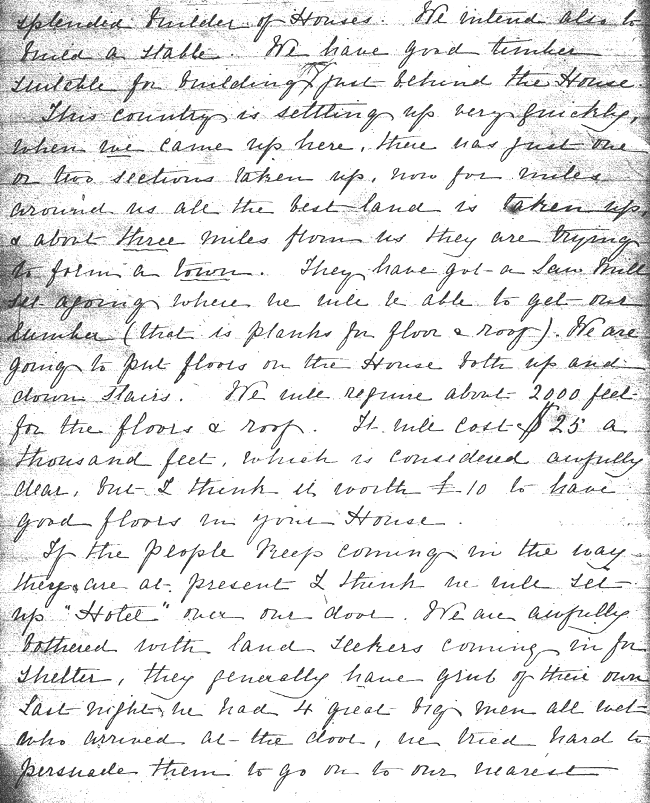 splended builder of Houses. We intend also to
build a stable. We have good timber
suitable for building just behind the House.
This country is settling up very quickly,
when we came up here, there was just one
or two sections taken up, now for miles
around us all the best land is taken up,
& about three miles from us they are trying
to form a town. They have got a Saw Mill
set agoing where we will be able to get our
lumber (that is planks for floor & roof). We are
going to put floors on the House both up and
down stairs. We will require about 2000 feet
for the floors & roof. It will cost $25 a
thousand feet, which is considered awfully
dear, but I think it worth £10 to have
good floors in your House.
If the people keep coming in the way
they are at present I think we will set
up "Hotel" over our door. We are awfully
bothered with land seekers coming in for
shelter, they generally have grub of their own
Last night we had 4 great big men all wet
who arrived at the door, we tried hard to
persuade them to go on to our nearest